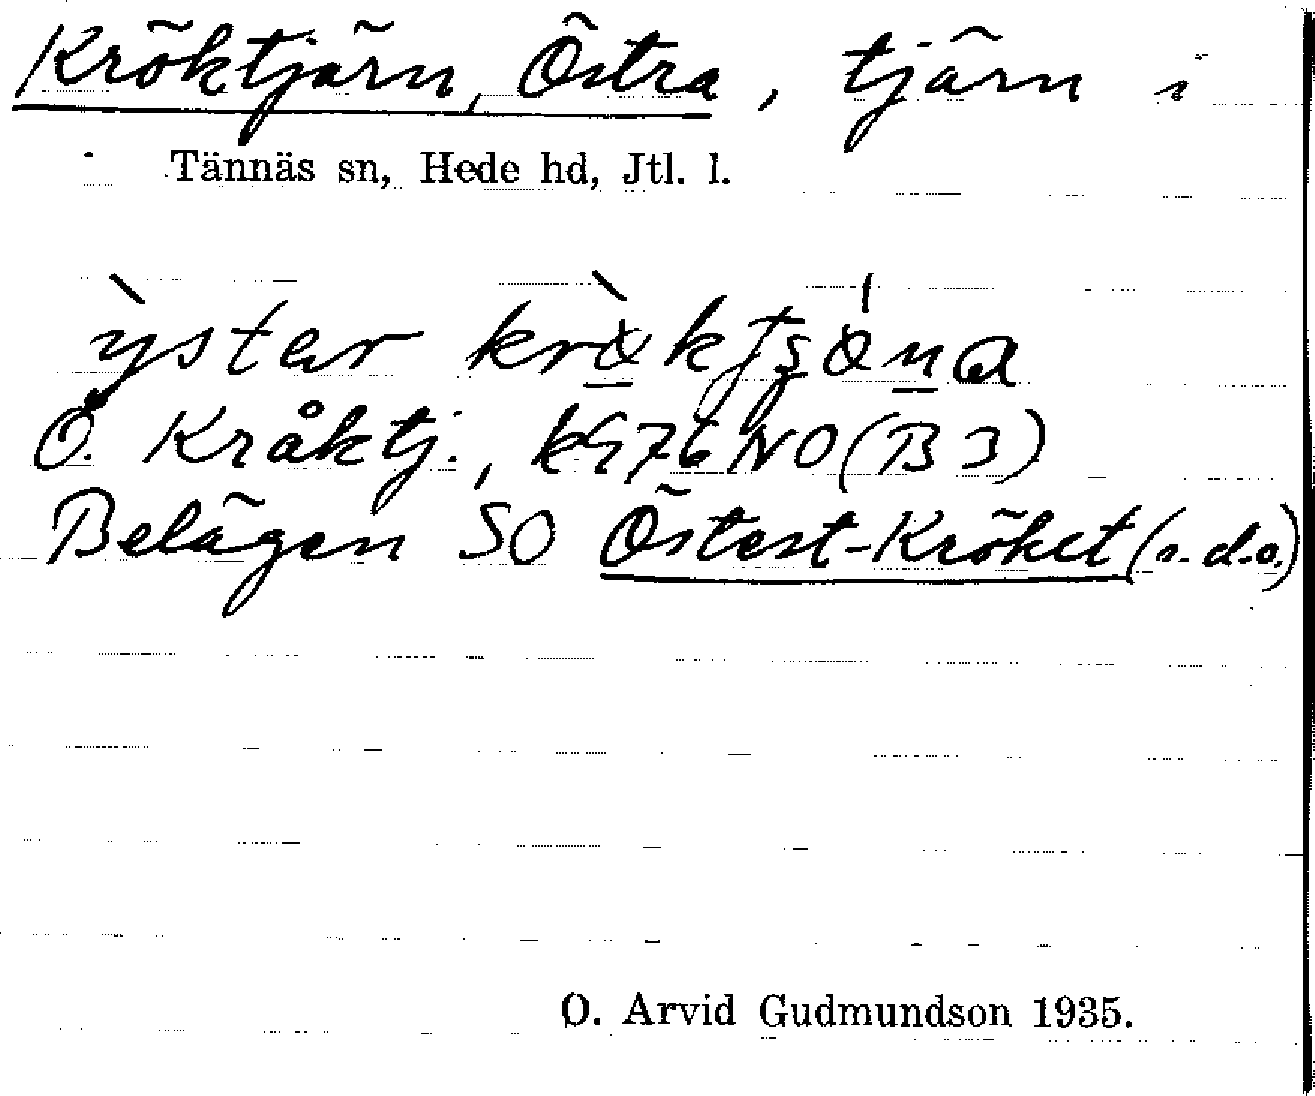 Kröktjärn, Östra, tjärn i
Tännäs sn, Hede hd, Jtl. l.
ỳstar
Ö. Kråktj., k 97 6 NO (B 3)
Belägen SO Östest-Kröket (s. d. o.)
O. Arvid Gudmundson 1935.